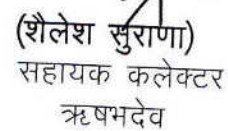 (शैलेश सुराणा)
सहायक कलेक्टर
ऋषभदेव